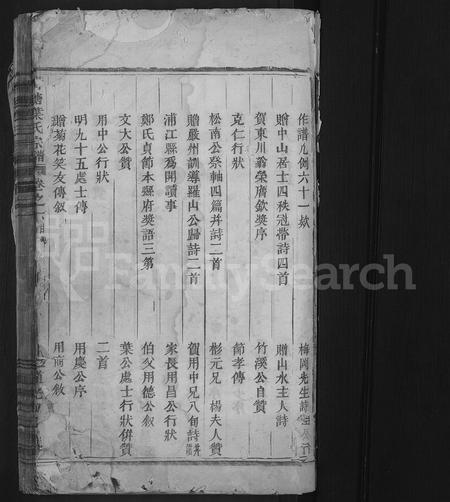 作譜凡例六十一欵
梅岡先生詩
贈中山居士四秩冠帶詩四首
贈山水主人詩
賀東川翁榮膺欽奬序
竹溪公自贊
克仁行狀
節孝傳
松南公祭軸四篇并詩二首
彬元兄 楊夫人贊
贈嚴州訓導羅山公歸詩二首
賀用中兄八旬詩
浦江縣為開讀事
家長用昌公行狀
鄭氏貞節本縣府奬語三第
伯父用德公敘
文大公贊
葉公處士行狀併贊
用中公行狀
二首
明九十五處士傳
用慶公序
贈菊花笑友傳敘
用前公敘
葉氏宗譜
卷之
FamilySearch